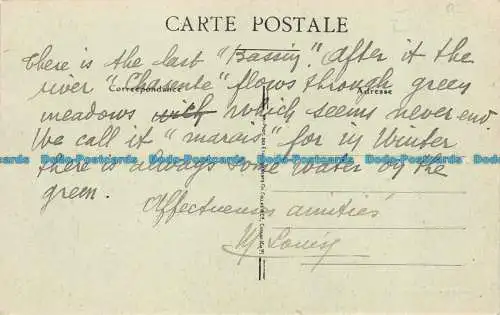 CARTE POSTALE
There is the last "Bassin". After it the
Correspondance
Adresse
river "Charente" flows through green
meadows with which seems never end.
We call it "marais" for in Winter
Dodo-Postcards Dodo-Postcards Dodo-Postcards Dodo-Postcards Dodo-Postcards
there is always some water by the
green.
Affectueuses amitiés